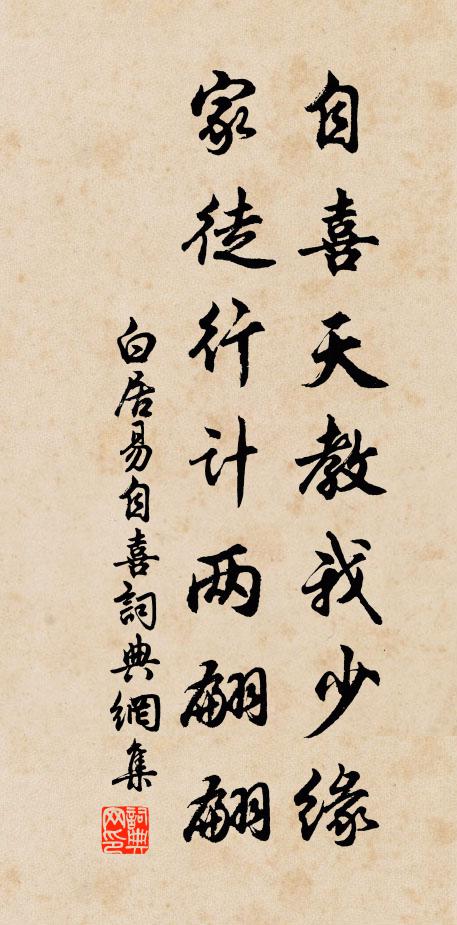 自喜天教我少缘
家徒行计两翩翩
白居易自喜詞典網集
詞典
网印